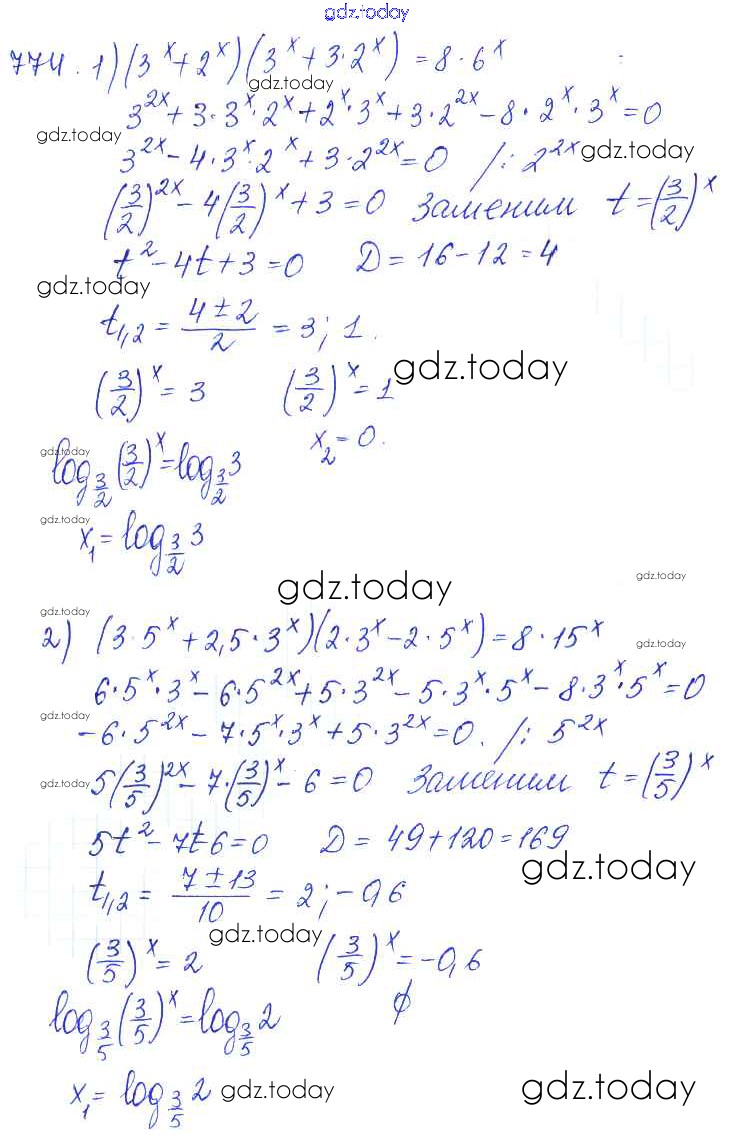 gdz.today
774. 1) (3^x + 2^x)(3^x + 3·2^x) = 8·6^x
gdz.today
3^{2x} + 3·3^x·2^x + 2^x·3^x + 3·2^{2x} − 8·2^x·3^x = 0
gdz.today
3^{2x} − 4·3^x·2^x + 3·2^{2x} = 0 /: 2^{2x} gdz.today
(3/2)^{2x} − 4(3/2)^x + 3 = 0 Заменим t = (3/2)^x
t^2 − 4t + 3 = 0 D = 16 − 12 = 4
gdz.today
t_{1,2} = (4 ± 2)/2 = 3; 1.
(3/2)^x = 3 (3/2)^x = 1 gdz.today
x_2 = 0.
gdz.today
log_{3/2} (3/2)^x = log_{3/2} 3
gdz.today
x_1 = log_{3/2} 3
gdz.today gdz.today
2) (3·5^x + 2,5·3^x)(2·3^x − 2·5^x) = 8·15^x
gdz.today
6·5^x·3^x − 6·5^{2x} + 5·3^{2x} − 5·3^x·5^x − 8·3^x·5^x = 0
gdz.today
−6·5^{2x} − 7·5^x·3^x + 5·3^{2x} = 0. /: 5^{2x}
gdz.today
5(3/5)^{2x} − 7·(3/5)^x − 6 = 0 Заменим t = (3/5)^x
5t^2 − 7t − 6 = 0 D = 49 + 120 = 169
gdz.today
t_{1,2} = (7 ± 13)/10 = 2; −0,6
gdz.today
(3/5)^x = 2 (3/5)^x = −0,6
∅
log_{3/5} (3/5)^x = log_{3/5} 2
x_1 = log_{3/5} 2 gdz.today gdz.today